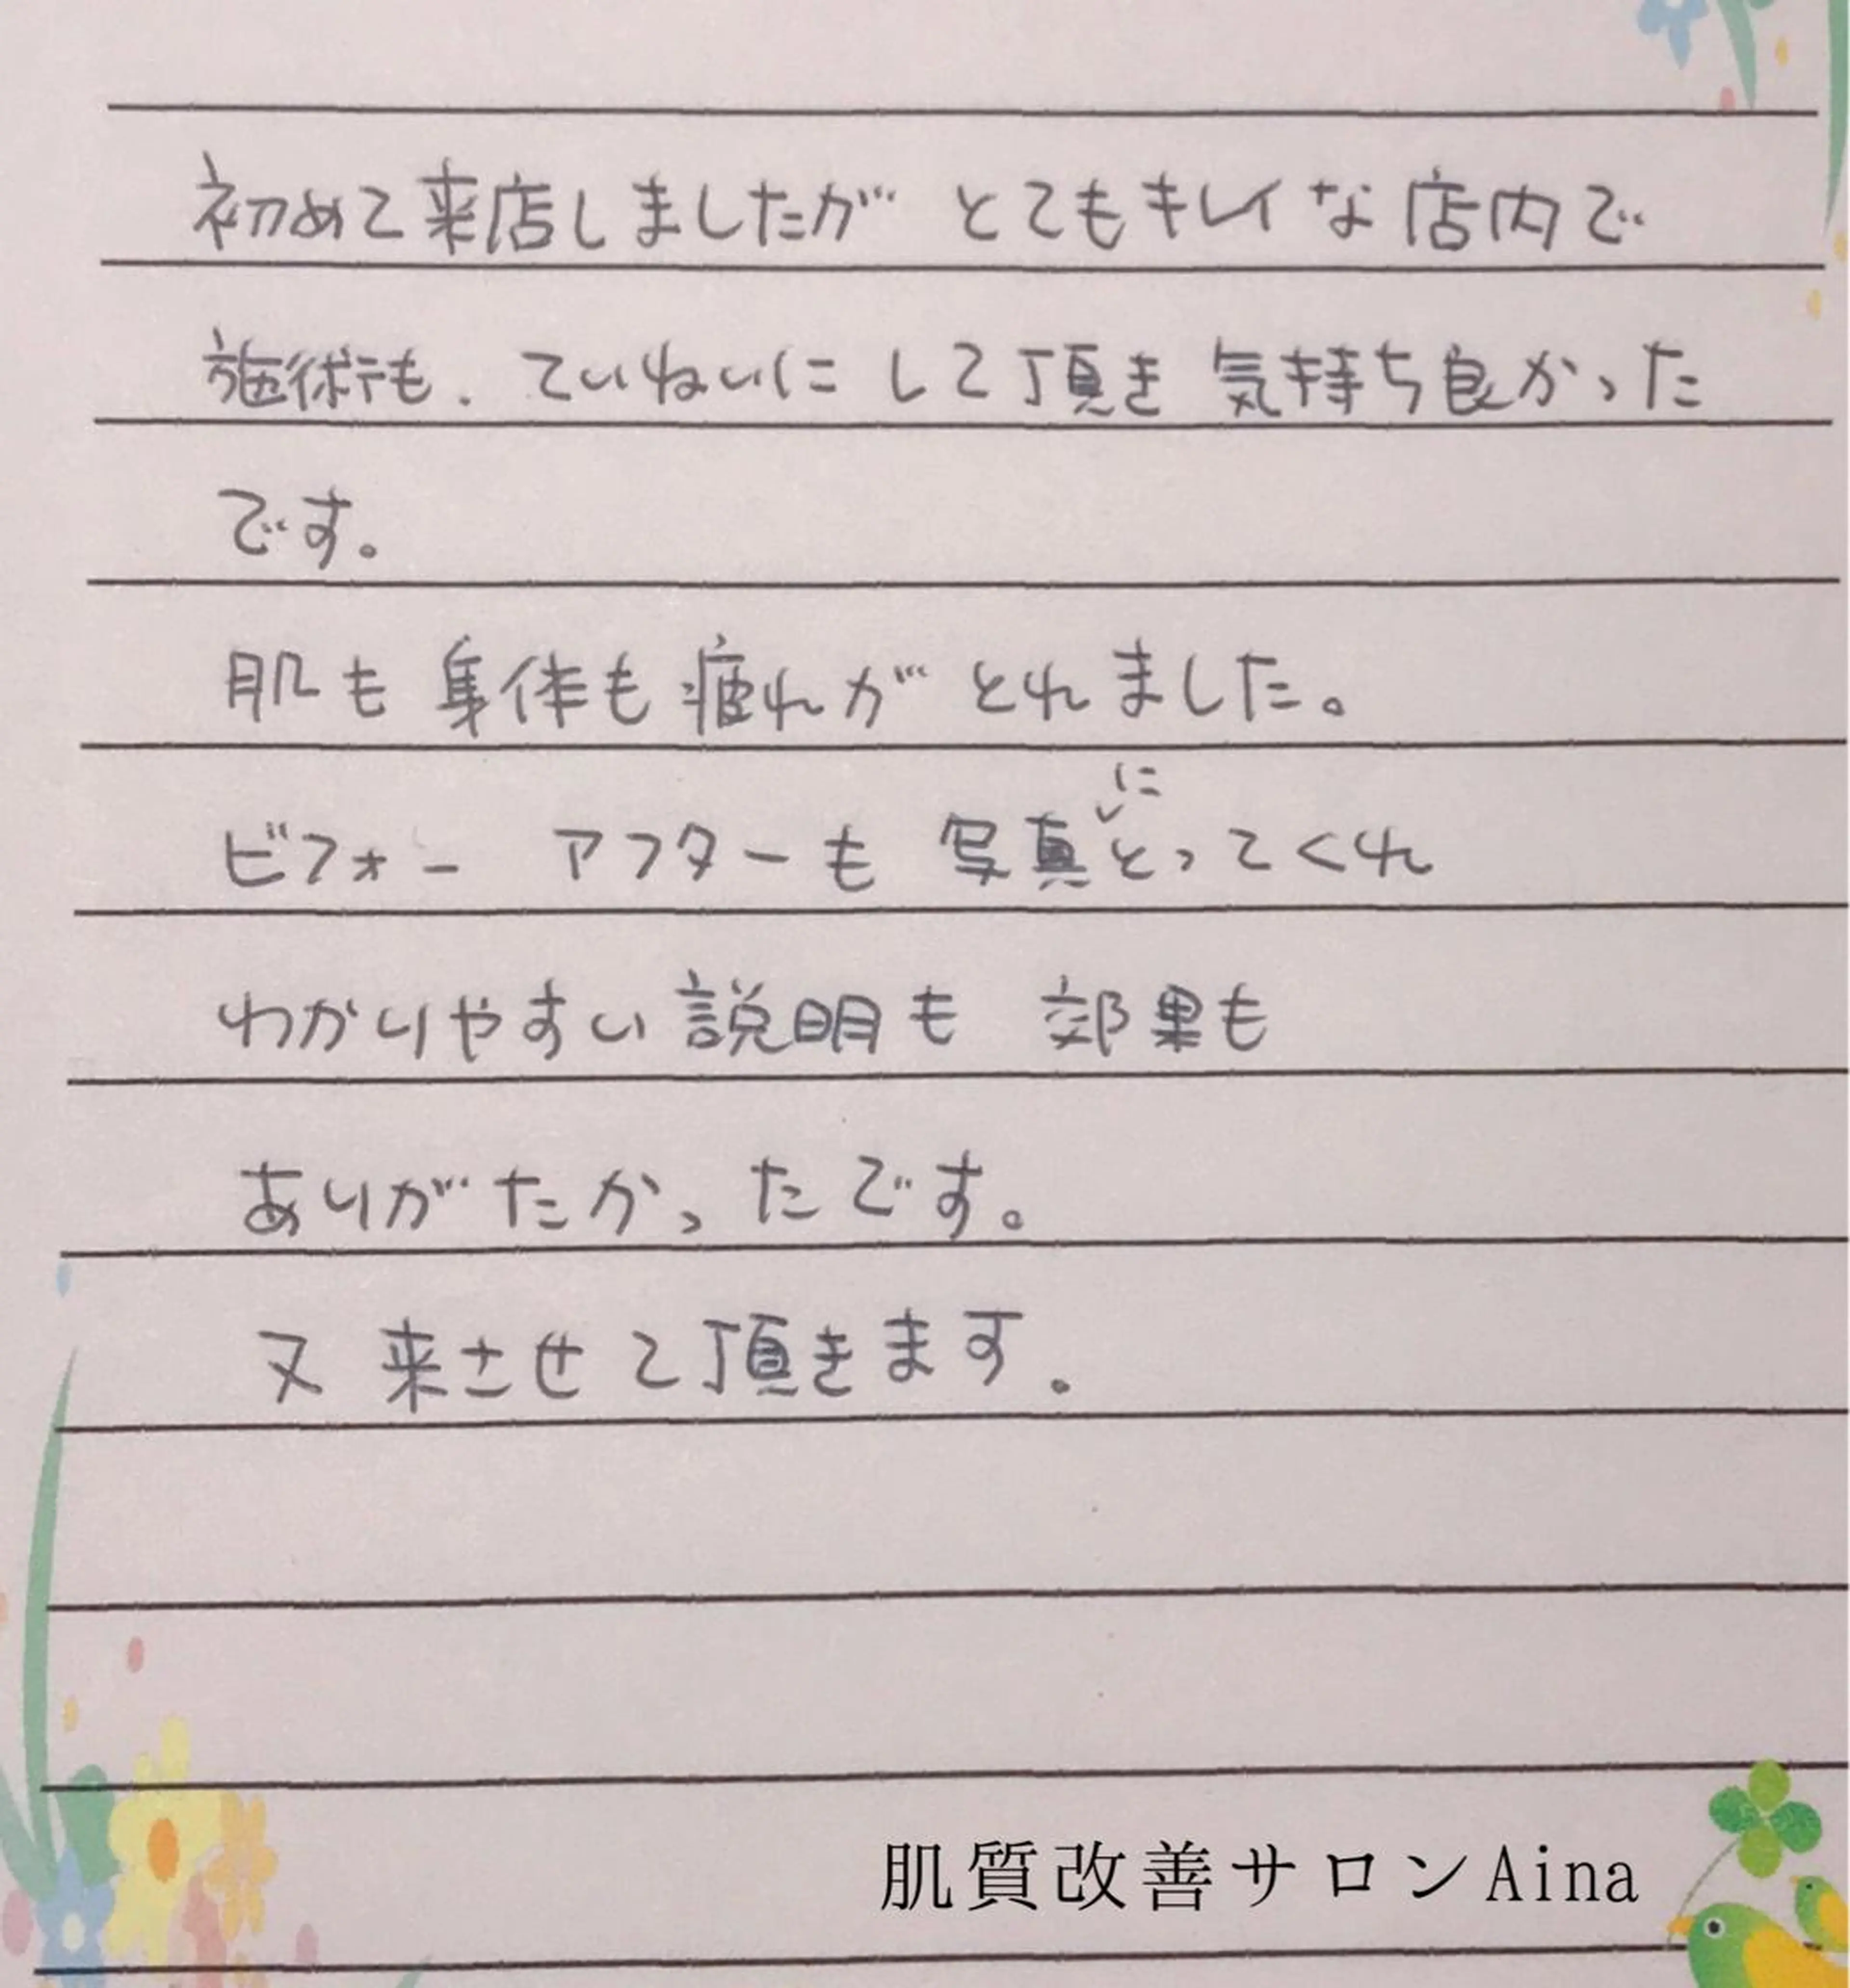 初めて来店しましたが とてもキレイな店内で
施術も、ていねいにして頂き 気持ち良かった
です。
肌も 身体も疲れが とれました。
ビフォー アフターも 写真にとってくれ
わかりやすい説明も 効果も
ありがたかったです。
又 来させて頂きます。
肌質改善サロンAina